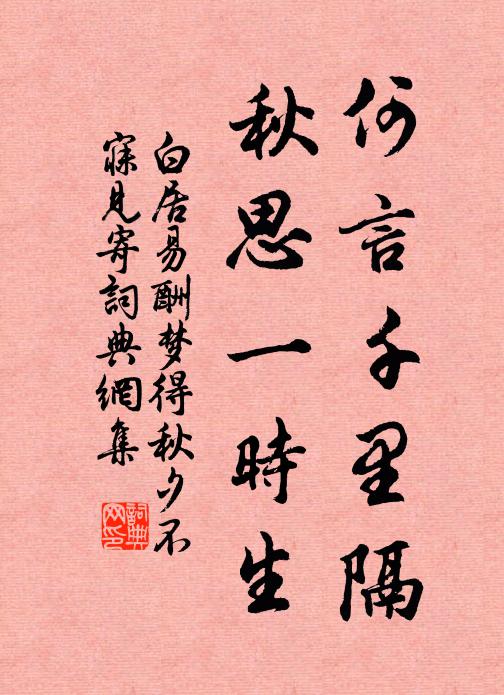 何言千里隔
秋思一時生
白居易酬梦得秋夕不
寐見寄詞典網集
詞典
网印